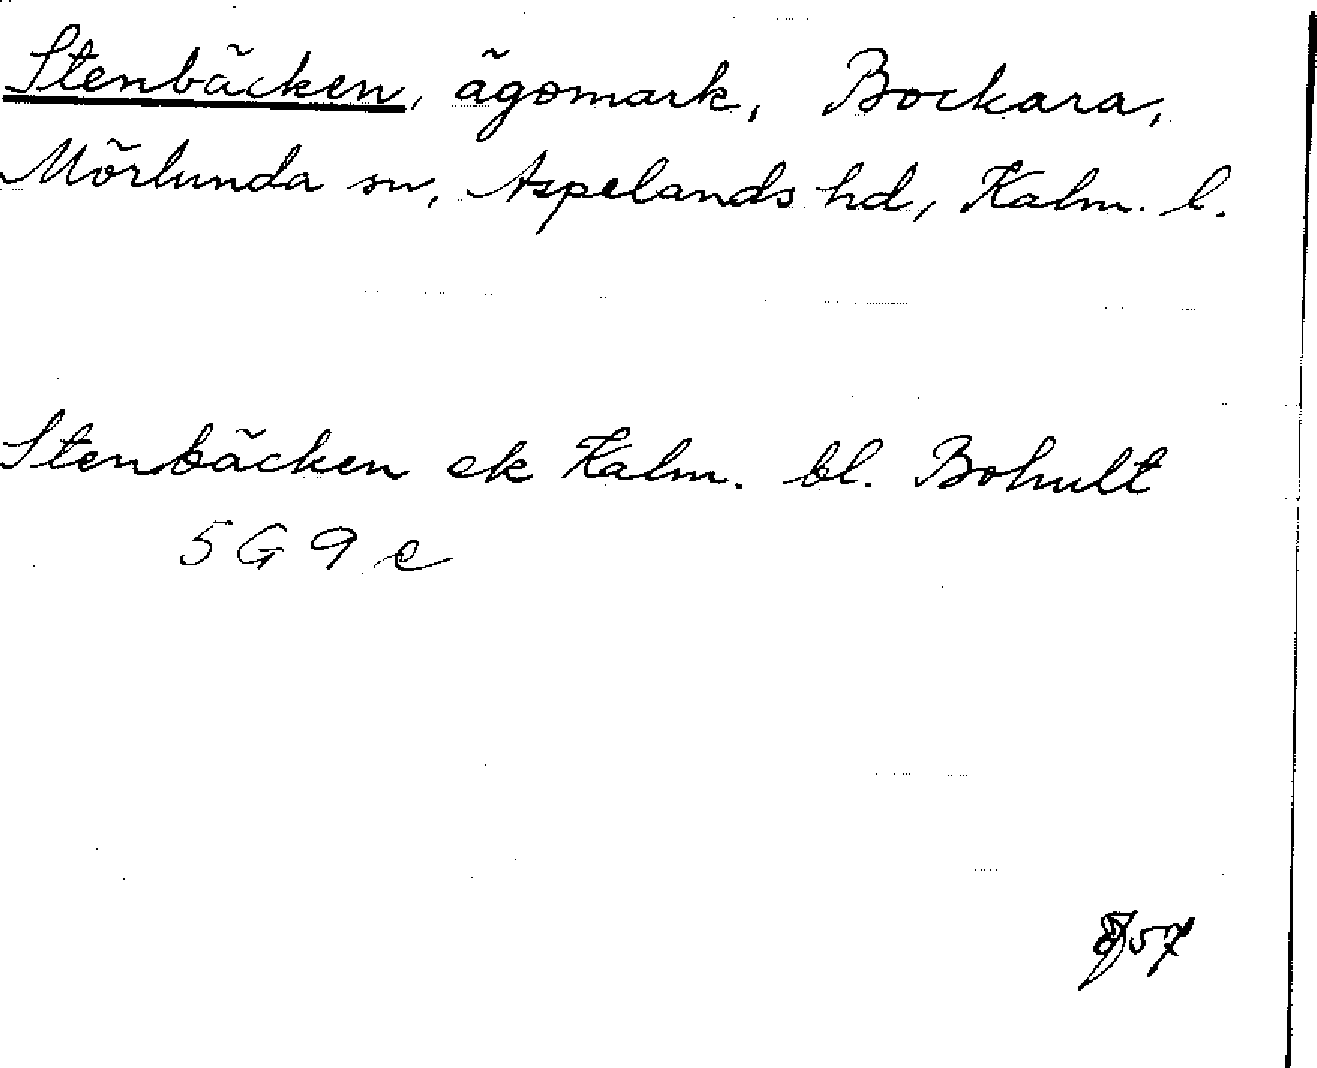 Stenbäcken, ägomark, Bockara,
Mörlunda sn, Aspelands hd, Kalm. l.
Stenbäcken ek Kalm. bl. Bohult
5 G 9 e
57